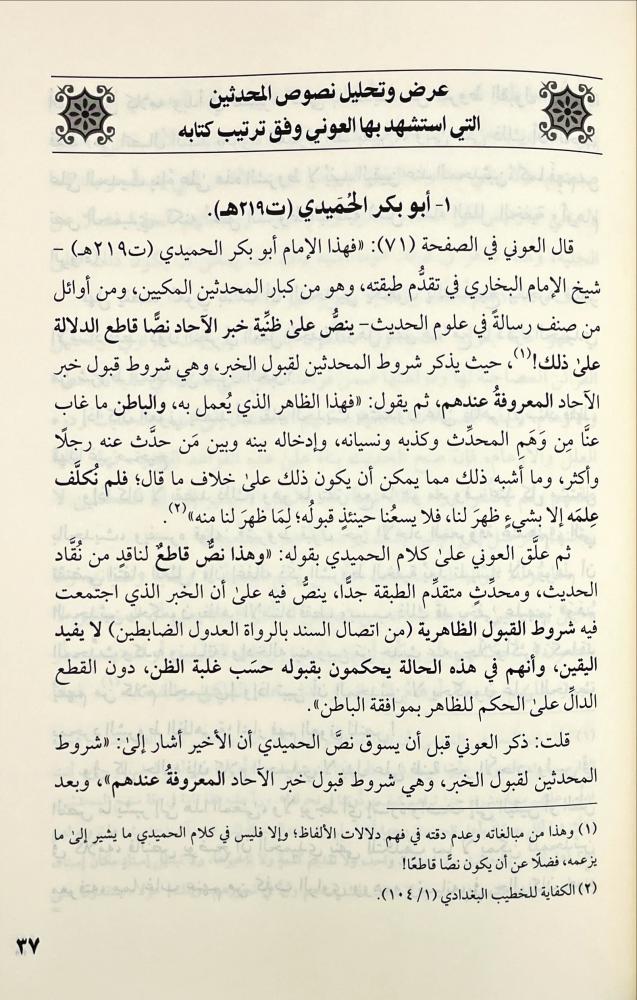 عرض وتحليل نصوص المحدثين
التي استشهد بها العوني وفق ترتيب كتابه
١- أبو بكر الحُمَيدي (ت٢١٩هـ).
قال العوني في الصفحة (٧١): «فهذا الإمام أبو بكر الحميدي (ت٢١٩هـ) –
شيخ الإمام البخاري في تقدُّم طبقته، وهو من كبار المحدثين المكيين، ومن أوائل
من صنف رسالةً في علوم الحديث– ينصُّ علىٰ ظنِّية خبر الآحاد نصًّا قاطع الدلالة
علىٰ ذلك!(١)، حيث يذكر شروط المحدثين لقبول الخبر، وهي شروط قبول خبر
الآحاد المعروفةُ عندهم، ثم يقول: «فهذا الظاهر الذي يُعمل به، والباطن ما غاب
عنَّا مِن وَهَمِ المحدِّث وكذبه ونسيانه، وإدخاله بينه وبين مَن حدَّث عنه رجلًا
وأكثر، وما أشبه ذلك مما يمكن أن يكون ذلك علىٰ خلاف ما قال؛ فلم نُكلَّف
عِلمَه إلا بشيءٍ ظهرَ لنا، فلا يسعُنا حينئذٍ قبولُه؛ لِمَا ظهرَ لنا منه»(٢).
ثم علَّق العوني علىٰ كلام الحميدي بقوله: «وهذا نصٌّ قاطعٌ لناقدٍ من نُقَّاد
الحديث، ومحدِّثٍ متقدِّم الطبقة جدًّا، ينصُّ فيه علىٰ أن الخبر الذي اجتمعت
فيه شروط القبول الظاهرية (من اتصال السند بالرواة العدول الضابطين) لا يفيد
اليقين، وأنهم في هذه الحالة يحكمون بقبوله حسَب غلبة الظن، دون القطع
الدالِّ علىٰ الحكم للظاهر بموافقة الباطن».
قلت: ذكر العوني قبل أن يسوق نصَّ الحميدي أن الأخير أشار إلىٰ: «شروط
المحدثين لقبول الخبر، وهي شروط قبول خبر الآحاد المعروفةُ عندهم»، وبعد
(١) وهذا من مبالغاته وعدم دقته في فهم دلالات الألفاظ؛ وإلا فليس في كلام الحميدي ما يشير إلىٰ ما
يزعمه، فضلًا عن أن يكون نصًّا قاطعًا!
(٢) الكفاية للخطيب البغدادي (١/ ١٠٤).
٣٧